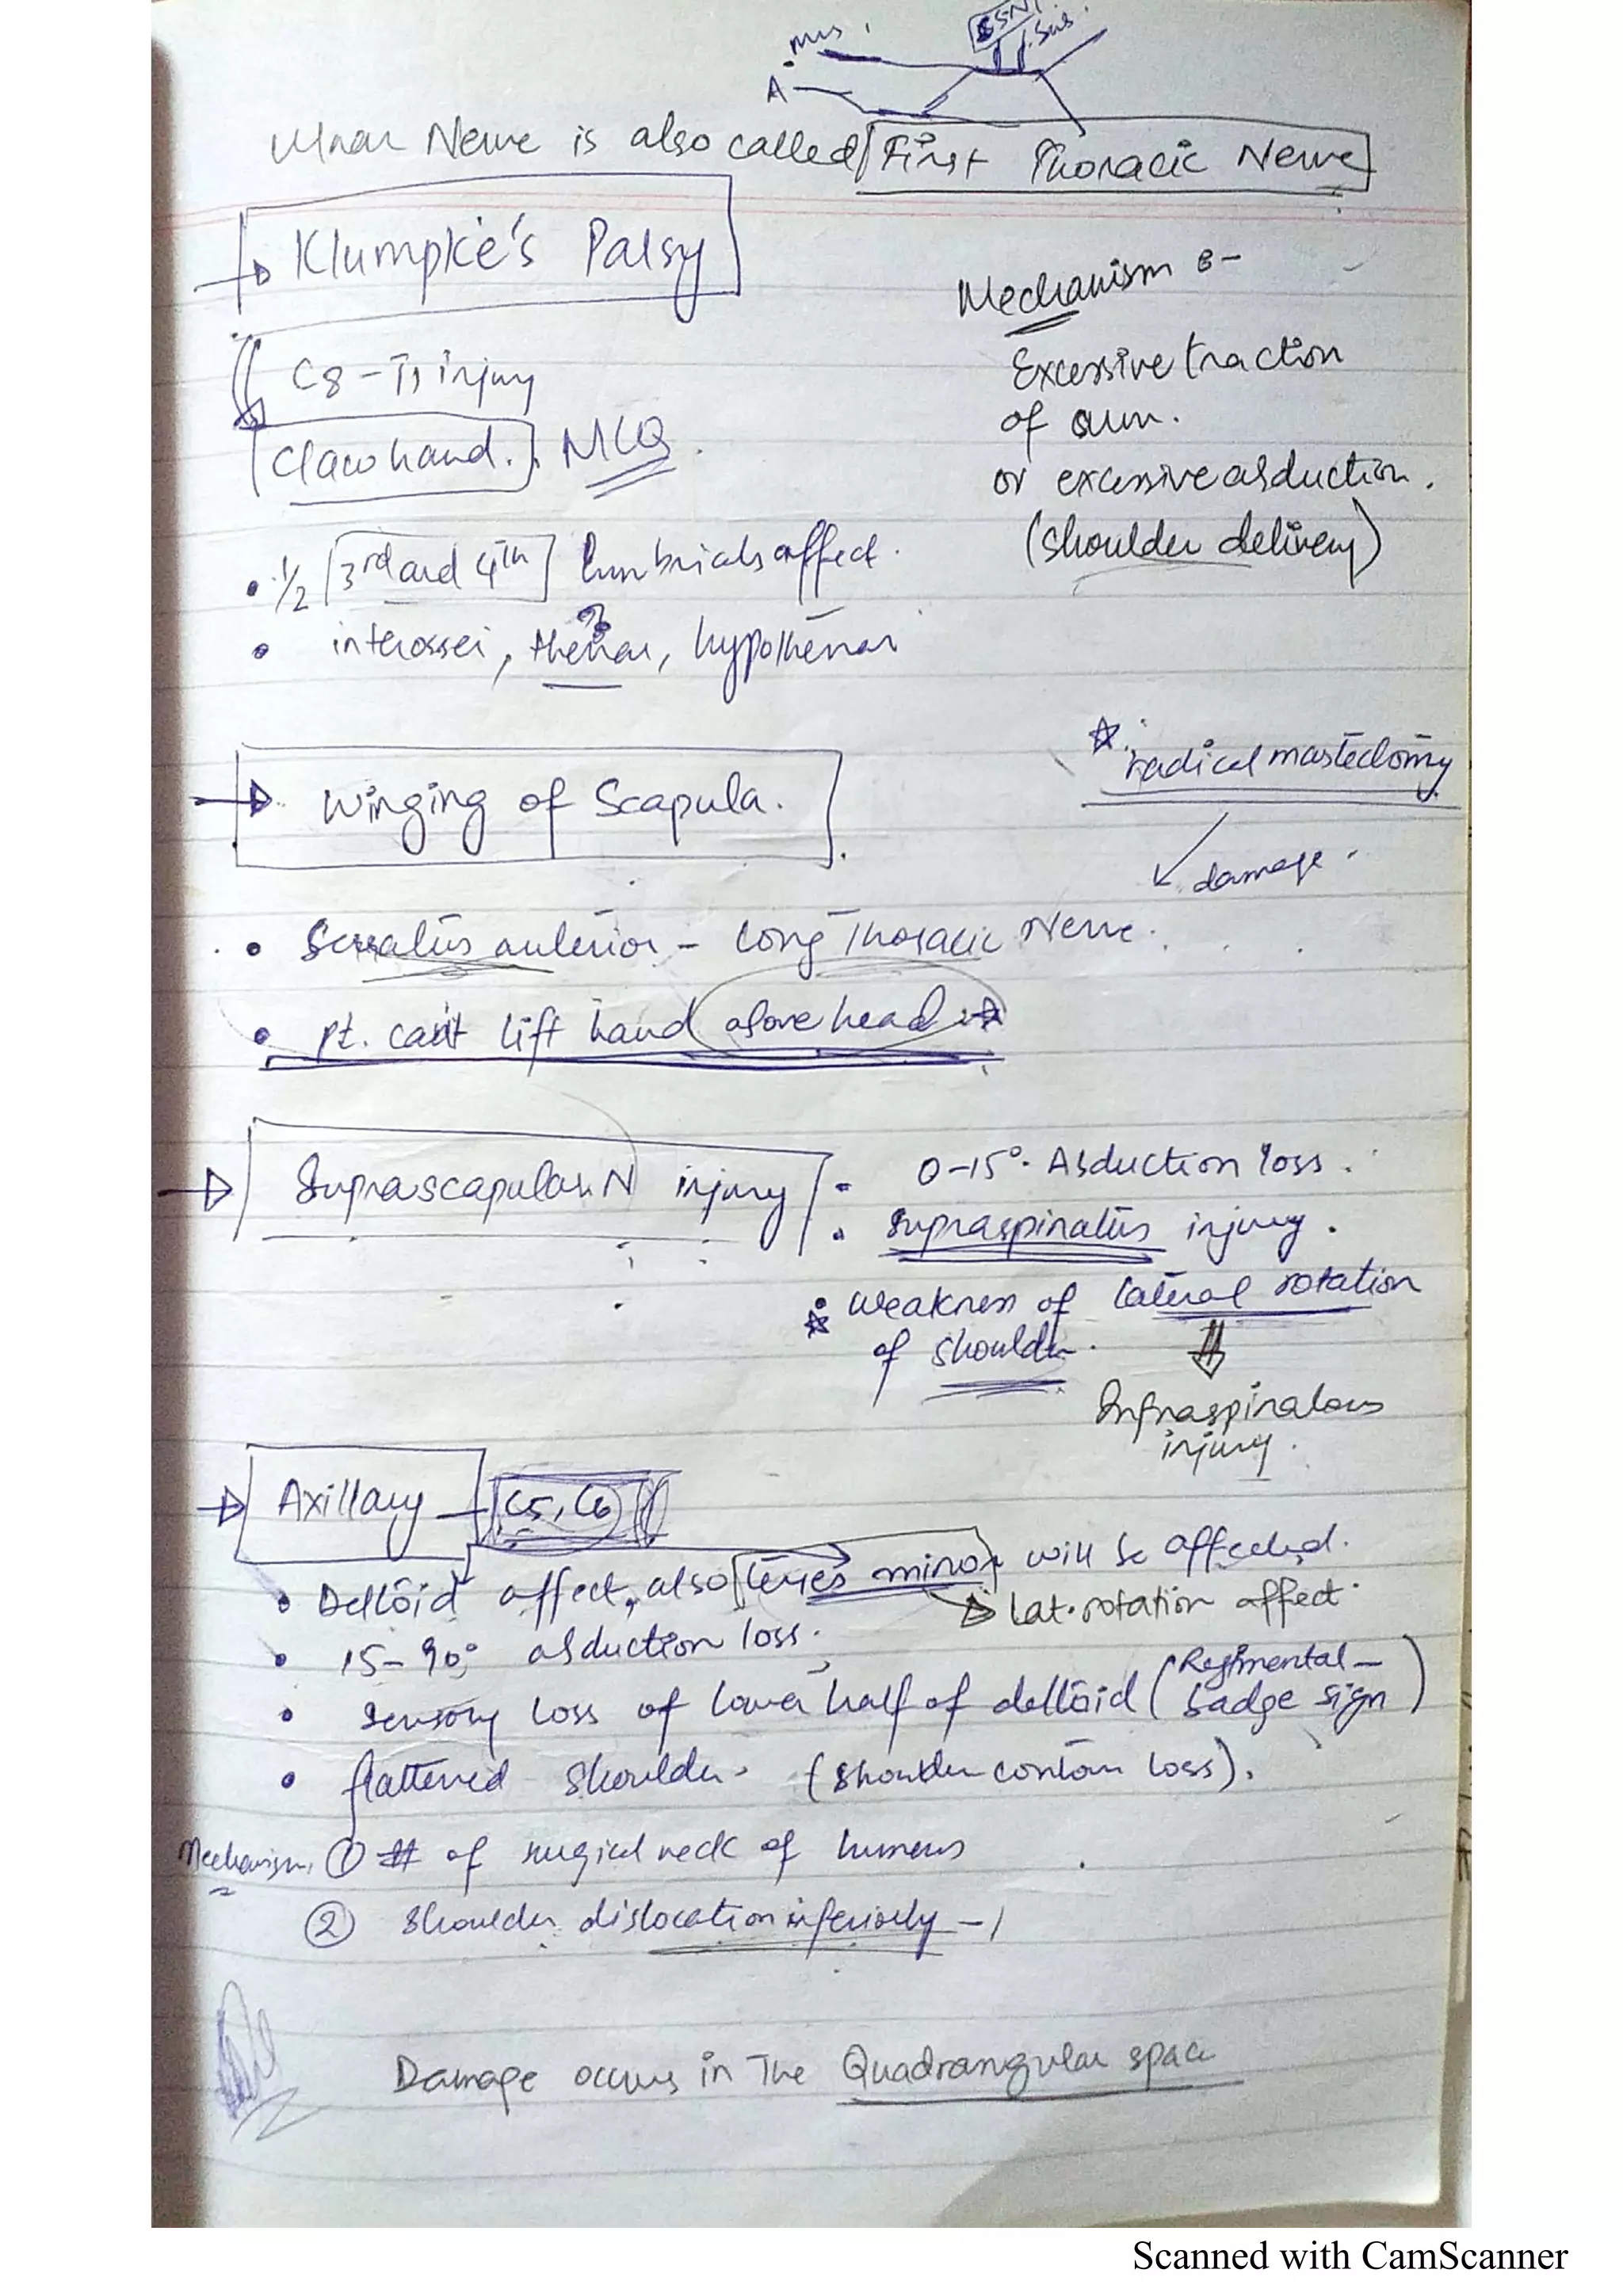 Mus.
A
Ulnar Nerve is also called First Thoracic Nerve
Klumpke's Palsy
Mechanism :-
Excessive traction
of arm.
or excessive abduction.
(shoulder delivery)
C8 - T1 injury
Claw hand. MCQ.
1/2 3rd and 4th lumbricals affect.
interossei, thenar, hypothenar
Winging of Scapula.
radical mastectomy
damage.
Serratus anterior - Long Thoracic Nerve.
pt. can't lift hand above head
Suprascapular N injury
0-15° Abduction loss.
supraspinatus injury.
Weakness of lateral rotation
of shoulder.
Infraspinatous
injury.
Axillary - C5, C6
Deltoid affect, also teres minor will be affected.
Lat. rotation affect
15-90° abduction loss.
sensory loss of lower half of deltoid (Regimental-
badge sign)
flattened shoulder. (shoulder contour loss).
Mechanism. ① # of surgical neck of humerus
② shoulder dislocation inferiorly -
Damage occurs in The Quadrangular space
Scanned with CamScanner